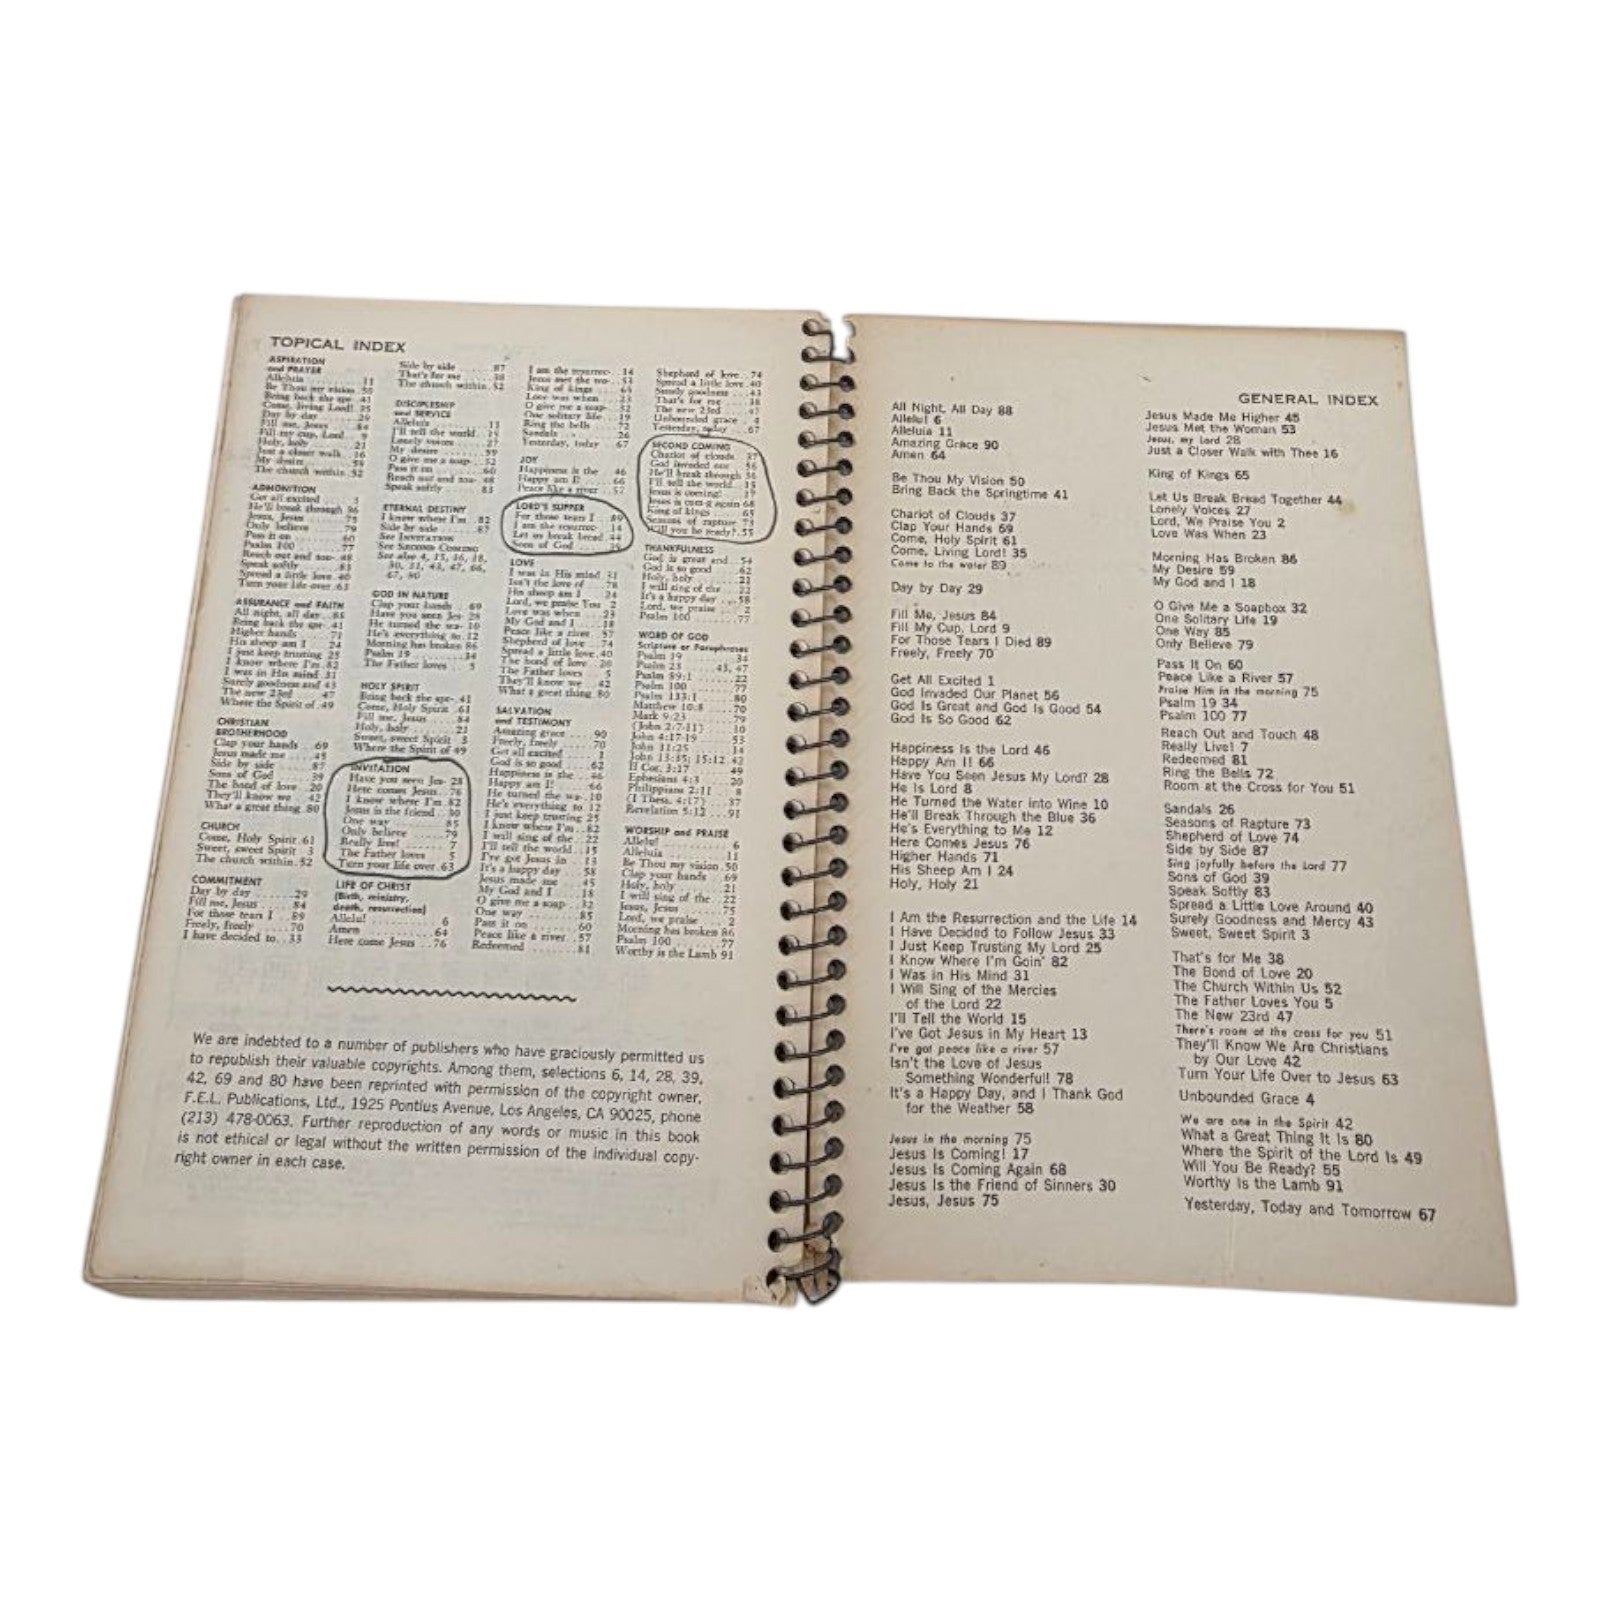 TOPICAL INDEX
ASPIRATION
and PRAYER
Alleluia 11
Be Thou my vision 50
Bring back the spr- 41
Come, living Lord! 35
Day by day 29
Fill me, Jesus 84
Fill my cup, Lord 9
Holy, holy 21
Just a closer walk 16
My desire 59
The church within 52
ADMONITION
Get all excited 1
He'll break through 36
Jesus, Jesus 75
Only believe 79
Pass it on 60
Psalm 100 77
Reach out and tou- 48
Speak softly 83
Spread a little love 40
Turn your life over 63
ASSURANCE and FAITH
All night, all day 88
Bring back the spr- 41
Higher hands 71
His sheep am I 24
I just keep trusting 25
I know where I'm 82
I was in His mind 31
Surely goodness and 43
The new 23rd 47
Where the Spirit of 49
CHRISTIAN
BROTHERHOOD
Clap your hands 69
Jesus made me 45
Side by side 87
Sons of God 39
The bond of love 20
They'll know we 42
What a great thing 80
CHURCH
Come, Holy Spirit 61
Sweet, sweet Spirit 3
The church within 52
COMMITMENT
Day by day 29
Fill me, Jesus 84
For those tears I 89
Freely, freely 70
I have decided to 33
Side by side 87
That's for me 38
The church within 52
DISCIPLESHIP
and SERVICE
Alleluia 11
I'll tell the world 15
Lonely voices 27
My desire 59
O give me a soap- 32
Pass it on 60
Reach out and tou- 48
Speak softly 83
ETERNAL DESTINY
I know where I'm 82
Side by side 87
See INVITATION
See SECOND COMING
See also 4, 15, 16, 18,
30, 31, 43, 47, 66,
67, 90
GOD IN NATURE
Clap your hands 69
Have you seen Jes- 28
He turned the wa- 10
He's everything to 12
Morning has broken 86
Psalm 19 34
The Father loves 5
HOLY SPIRIT
Bring back the spr- 41
Come, Holy Spirit 61
Fill me, Jesus 84
Holy, holy 21
Sweet, sweet Spirit 3
Where the Spirit of 49
INVITATION
Have you seen Jes- 28
Here comes Jesus 76
I know where I'm 82
Jesus is the friend 30
One way 85
Only believe 79
Really live! 7
The Father loves 5
Turn your life over 63
LIFE OF CHRIST
(Birth, ministry,
death, resurrection)
Allelu! 6
Amen 64
Here come Jesus 76
I am the resurrec- 14
Jesus met the wo- 53
King of kings 65
Love was when 23
O give me a soap- 32
One solitary life 19
Ring the bells 72
Sandals 26
Yesterday, today 67
JOY
Happiness is the 46
Happy am I! 66
Peace like a river 57
LORD'S SUPPER
For those tears I 89
I am the resurrec- 14
Let us break bread 44
Sons of God 39
LOVE
I was in His mind 31
Isn't the love of 78
His sheep am I 24
Lord, we praise You 2
Love was when 23
My God and I 18
Peace like a river 57
Shepherd of love 74
Spread a little love 40
The bond of love 20
The Father loves 5
They'll know we 42
What a great thing 80
SALVATION
and TESTIMONY
Amazing grace 90
Freely, freely 70
Get all excited 1
God is so good 62
Happiness is the 46
Happy am I! 66
He turned the wa- 10
He's everything to 12
I just keep trusting 25
I know where I'm 82
I will sing of the 22
I'll tell the world 15
I've got Jesus in 13
It's a happy day 58
Jesus made me 45
My God and I 18
O give me a soap 32
One way 85
Pass it on 60
Peace like a river 57
Redeemed 81
Shepherd of love 74
Spread a little love 40
Surely goodness 43
That's for me 38
The new 23rd 47
Unbounded grace 4
Yesterday, today 67
SECOND COMING
Chariot of clouds 37
God invaded our 56
He'll break through 36
I'll tell the world 15
Jesus is coming! 17
Jesus is com-g again 68
King of kings 65
Seasons of rapture 73
Will you be ready? 55
THANKFULNESS
God is great and 54
God is so good 62
Holy, holy 21
I will sing of the 22
It's a happy day 58
Lord, we praise 2
Psalm 100 77
WORD OF GOD
Scripture or Paraphrases
Psalm 19 34
Psalm 23 43, 47
Psalm 89:1 22
Psalm 100 77
Psalm 133:1 80
Matthew 10:8 70
Mark 9:23 79
(John 2:7-11) 10
John 4:17-19 53
John 11:25 14
John 13:35; 15:12 42
II Cor. 3:17 49
Ephesians 4:3 20
Philippians 2:11 8
(I Thess. 4:17) 37
Revelation 5:12 91
WORSHIP and PRAISE
Allelu! 6
Alleluia 11
Be Thou my vision 50
Clap your hands 69
Holy, holy 21
I will sing of the 22
Jesus, Jesus 75
Lord, we praise 2
Morning has broken 86
Psalm 100 77
Worthy is the Lamb 91
We are indebted to a number of publishers who have graciously permitted us
to republish their valuable copyrights. Among them, selections 6, 14, 28, 39,
42, 69 and 80 have been reprinted with permission of the copyright owner,
F.E.L. Publications, Ltd., 1925 Pontius Avenue, Los Angeles, CA 90025, phone
(213) 478-0063. Further reproduction of any words or music in this book
is not ethical or legal without the written permission of the individual copy-
right owner in each case.
GENERAL INDEX
All Night, All Day 88
Allelu! 6
Alleluia 11
Amazing Grace 90
Amen 64
Be Thou My Vision 50
Bring Back the Springtime 41
Chariot of Clouds 37
Clap Your Hands 69
Come, Holy Spirit 61
Come, Living Lord! 35
Come to the water 89
Day by Day 29
Fill Me, Jesus 84
Fill My Cup, Lord 9
For Those Tears I Died 89
Freely, Freely 70
Get All Excited 1
God Invaded Our Planet 56
God Is Great and God Is Good 54
God Is So Good 62
Happiness Is the Lord 46
Happy Am I! 66
Have You Seen Jesus My Lord? 28
He Is Lord 8
He Turned the Water into Wine 10
He'll Break Through the Blue 36
He's Everything to Me 12
Here Comes Jesus 76
Higher Hands 71
His Sheep Am I 24
Holy, Holy 21
I Am the Resurrection and the Life 14
I Have Decided to Follow Jesus 33
I Just Keep Trusting My Lord 25
I Know Where I'm Goin' 82
I Was in His Mind 31
I Will Sing of the Mercies
of the Lord 22
I'll Tell the World 15
I've Got Jesus in My Heart 13
I've got peace like a river 57
Isn't the Love of Jesus
Something Wonderful! 78
It's a Happy Day, and I Thank God
for the Weather 58
Jesus in the morning 75
Jesus Is Coming! 17
Jesus Is Coming Again 68
Jesus Is the Friend of Sinners 30
Jesus, Jesus 75
Jesus Made Me Higher 45
Jesus Met the Woman 53
Jesus, my lord 28
Just a Closer Walk with Thee 16
King of Kings 65
Let Us Break Bread Together 44
Lonely Voices 27
Lord, We Praise You 2
Love Was When 23
Morning Has Broken 86
My Desire 59
My God and I 18
O Give Me a Soapbox 32
One Solitary Life 19
One Way 85
Only Believe 79
Pass It On 60
Peace Like a River 57
Praise Him in the morning 75
Psalm 19 34
Psalm 100 77
Reach Out and Touch 48
Really Live! 7
Redeemed 81
Ring the Bells 72
Room at the Cross for You 51
Sandals 26
Seasons of Rapture 73
Shepherd of Love 74
Side by Side 87
Sing joyfully before the Lord 77
Sons of God 39
Speak Softly 83
Spread a Little Love Around 40
Surely Goodness and Mercy 43
Sweet, Sweet Spirit 3
That's for Me 38
The Bond of Love 20
The Church Within Us 52
The Father Loves You 5
The New 23rd 47
There's room at the cross for you 51
They'll Know We Are Christians
by Our Love 42
Turn Your Life Over to Jesus 63
Unbounded Grace 4
We are one in the Spirit 42
What a Great Thing It Is 80
Where the Spirit of the Lord Is 49
Will You Be Ready? 55
Worthy Is the Lamb 91
Yesterday, Today and Tomorrow 67